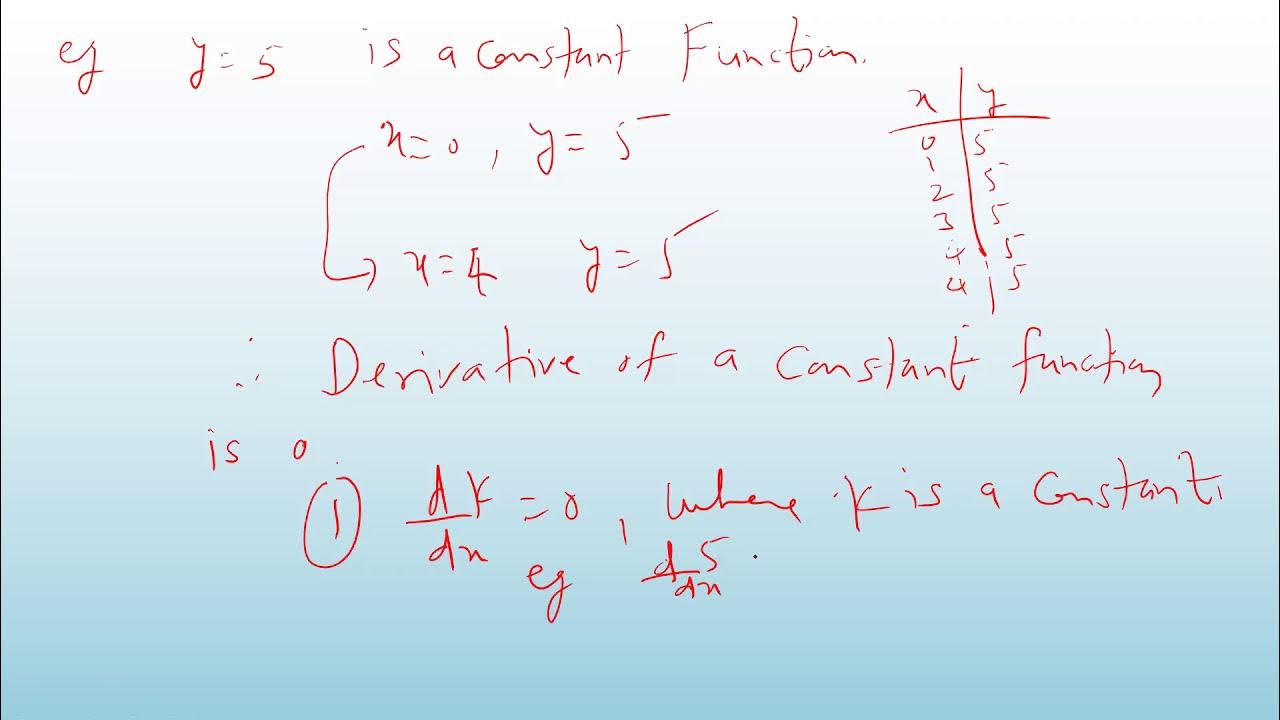 eg y = 5 is a constant Function.
x = 0, y = 5
x = 4 y = 5
x | y
0 | 5
1
2 | 5
3 | 5
4 | 5
4 | 5
∴ Derivative of a constant function
is 0
① dk/dx = 0, where k is a constant,
eg d5/dx